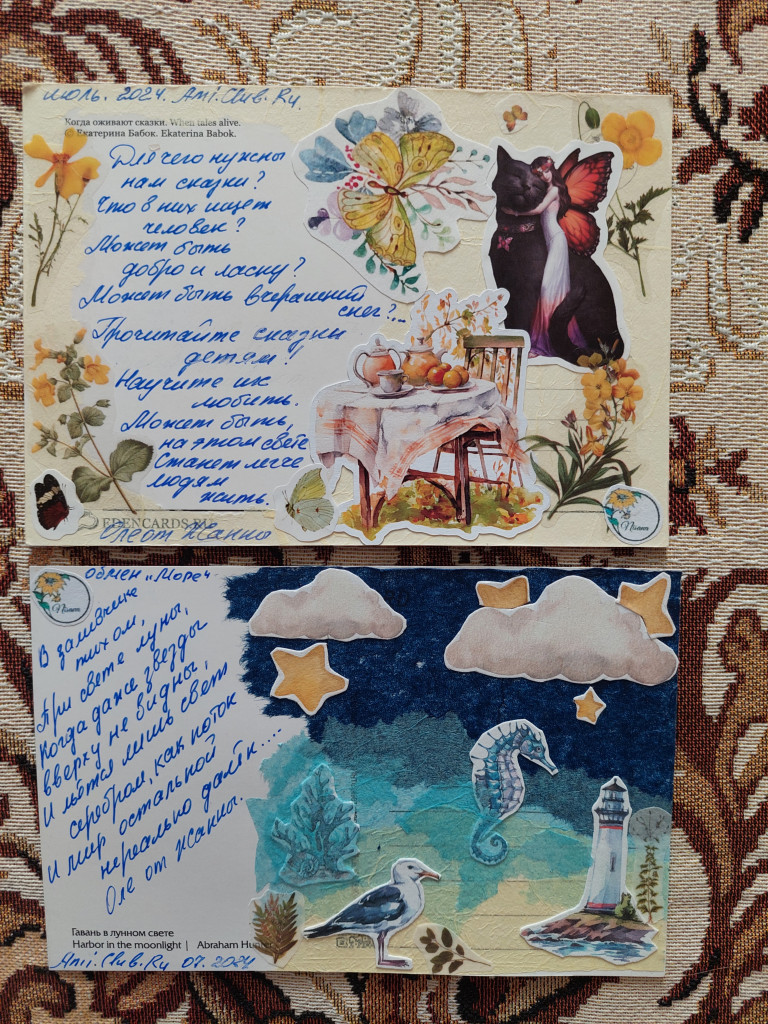 июль. 2024. Ami.Club.Ru.
Когда оживают сказки. When tales alive.
© Екатерина Бабок. Ekaterina Babok.
Для чего нужны
нам сказки?
Что в них ищет
человек?
Может быть
добро и ласку?
Может быть вчерашний
снег?...
Прочитайте сказки
детям!
Научите их
любить.
Может быть,
на этом свете
Станет легче
людям
жить.
EDENCARDS.RU
Оле от Жанны
обмен „Море"
В заливчике
тихом,
При свете луны,
Когда даже звезды
вверху не видны,
И льётся лишь свет
серебром, как поток
И мир остальной
нереально далёк....
Оле от Жанны.
Гавань в лунном свете
Harbor in the moonlight | Abraham Hunter
Ami.Club.Ru 07.2024